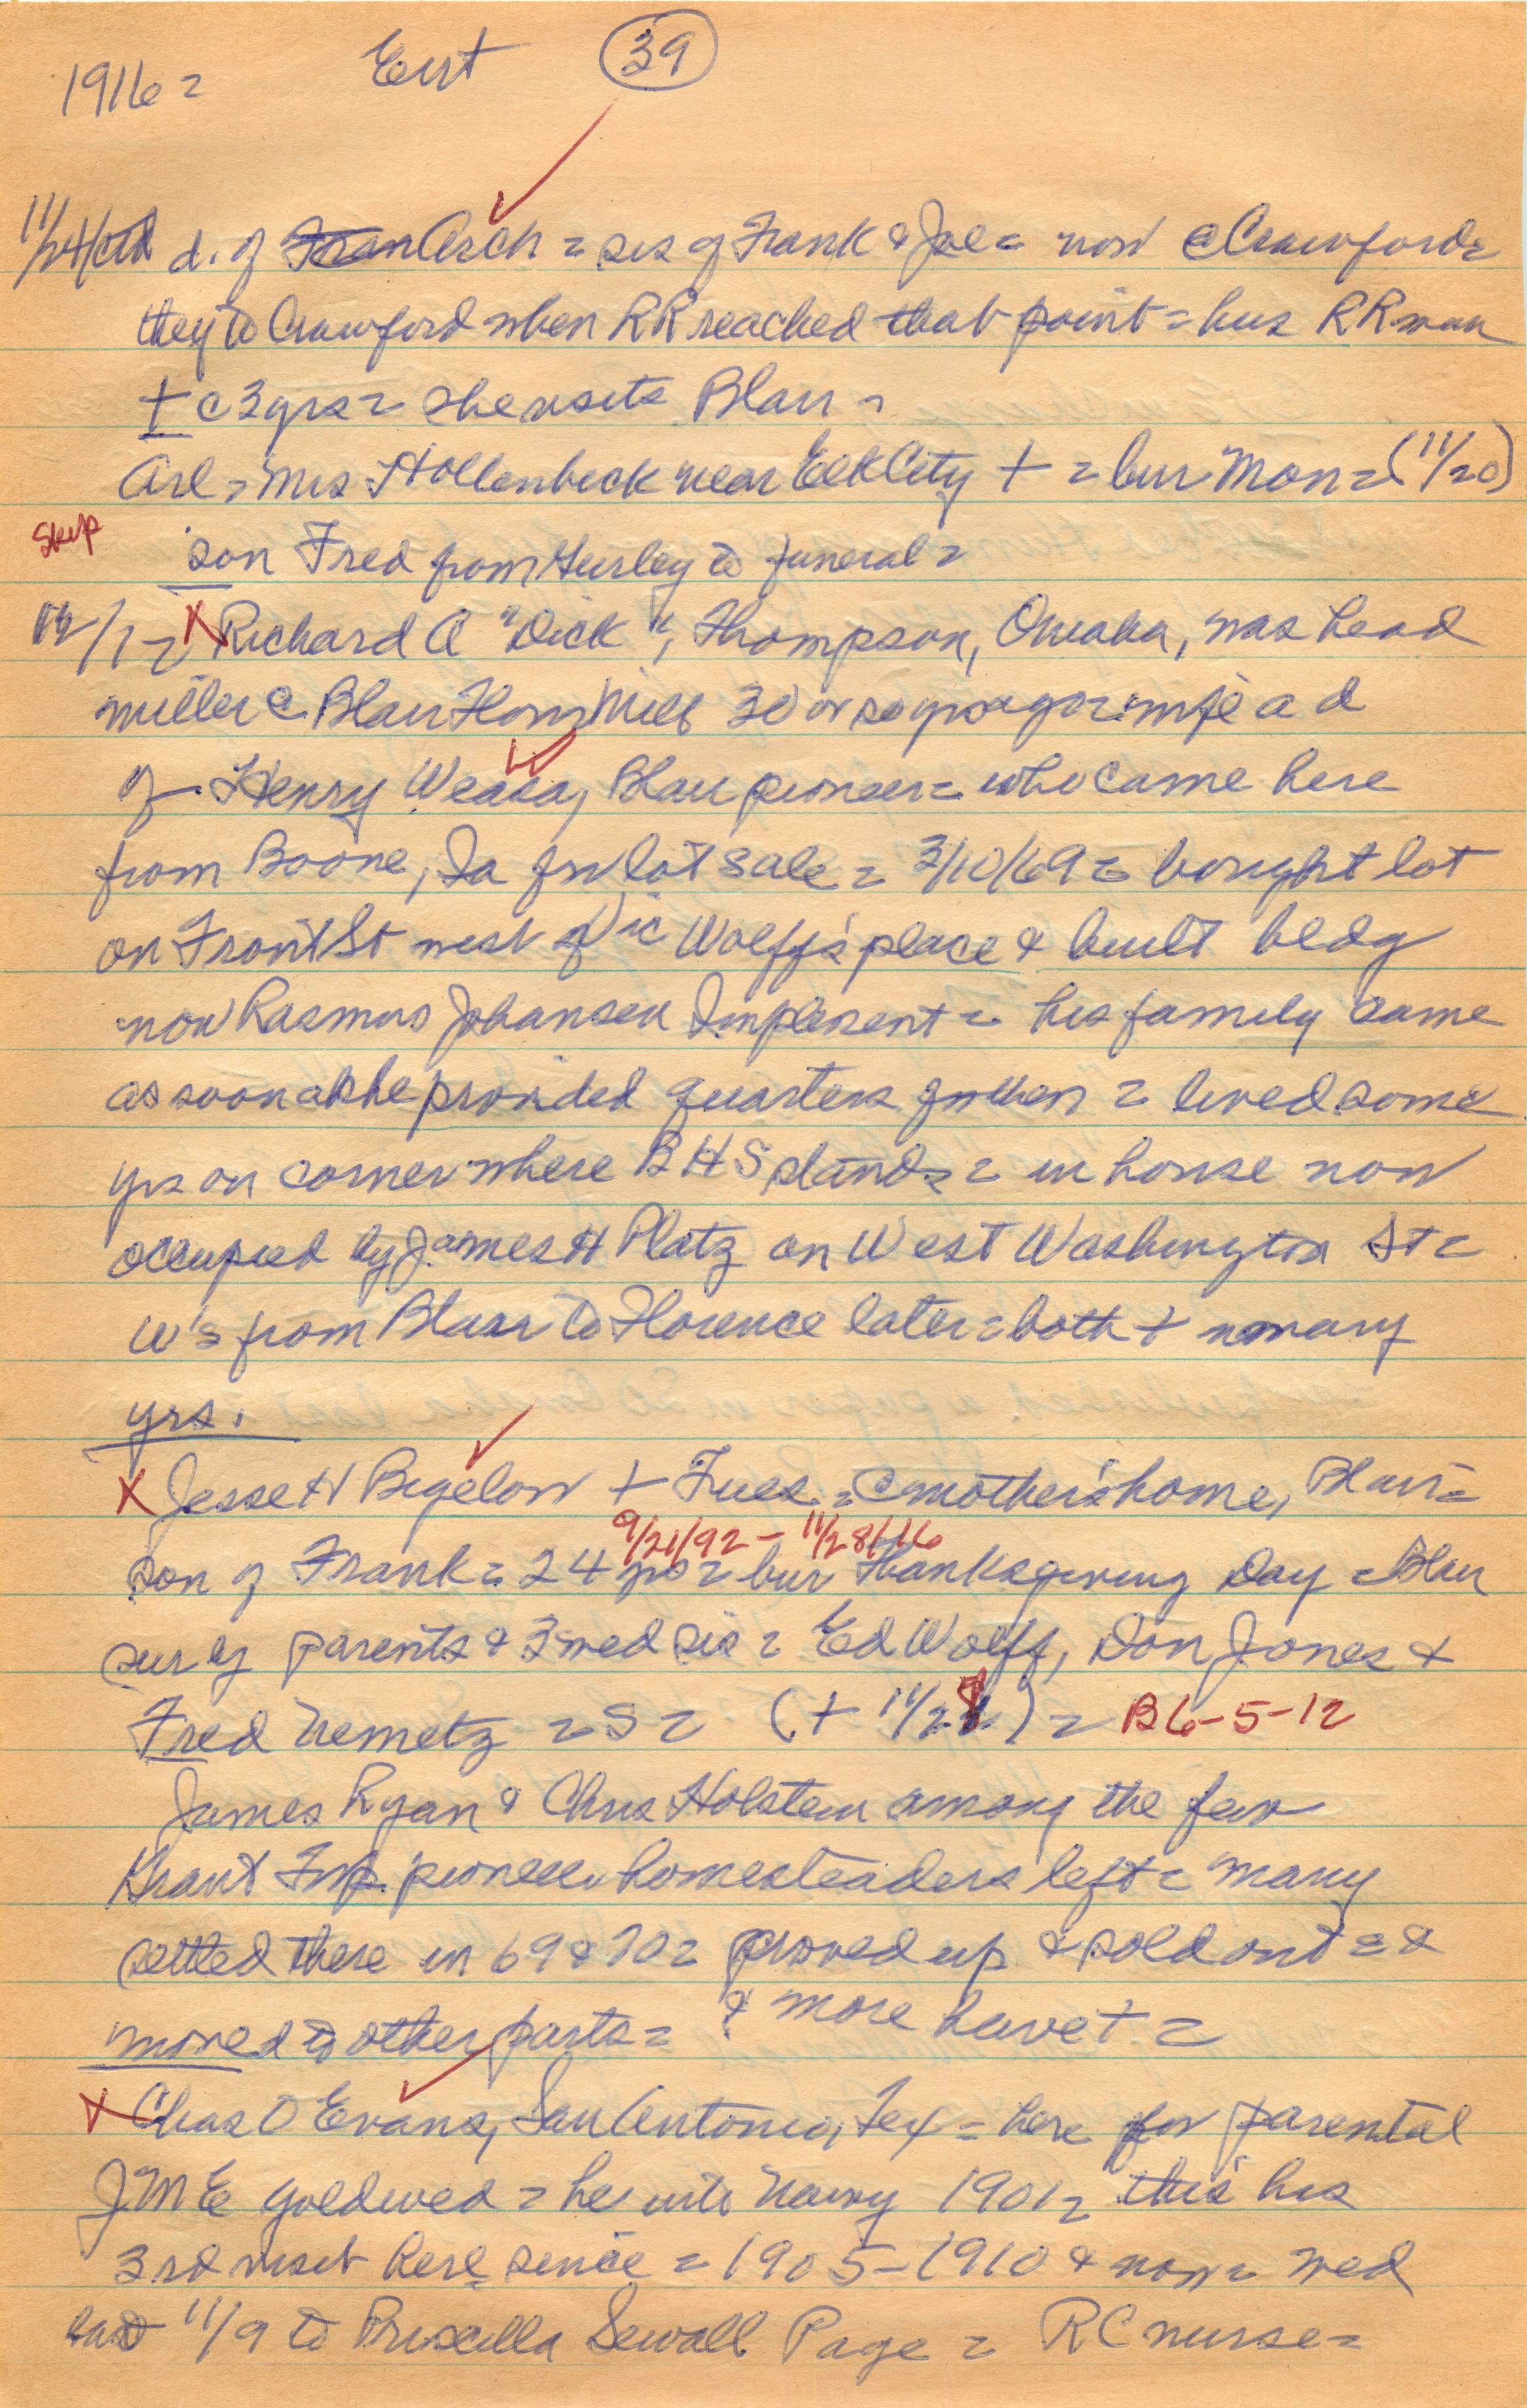 1916 = Ent 39
11/24/ctd d. of Fran Arch = sis of Frank & Joe = now @ Crawford =
they to Crawford when RR reached that point = hus RR man
+ c 3 yrs = she visits Blair =
Arl = Mrs Hollenbeck near Elk City + = bur Mon = (11/20)
Skip son Fred from Gurley to funeral =
12/1 = X Richard A "Dick", Thompson, Omaha, was head
miller @ Blair Flour Mill 30 or so yrs ago = wife a d
of Henry Weaver, Blair pioneer = who came here
from Boone, Ia for lot sale = 3/10/69 = bought lot
on Front St west of Vic Wolff's place & built bldg
now Rasmus Johansen Implement = his family came
as soon as he provided quarters for them = lived some
yrs on corner where BHS stands = in house now
occupied by James H Platz on West Washington St =
W's from Blair to Florence later = both + many
yrs.
X Jesse H Bigelow + Tues = @ mother's home, Blair =
9/21/92 - 11/28/16
son of Frank = 24 yrs = bur Thanksgiving Day = Blair
sur by parents & 3 wed sis = Ed Wolff, Don Jones &
Fred Nemetz = S = (+ 11/28) = B 6-5-12
James Ryan & Chris Holstein among the few
Grant Twp pioneer homesteaders left = many
settled there in 69 & 70 = proved up & sold out = &
moved to other parts = & more have + =
X Chas O Evans, San Antonio, Tex = here for parental
JME gold wed = he into Navy 1901 = this his
3rd visit here since = 1905 - 1910 & now = wed
11/9 to Priscilla Sewall Page = RC nurse =